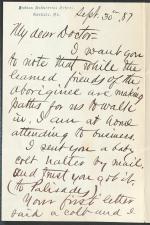 Sept. 30th '87
My dear Doctor:
I want you
to note that while the
learned friends of the
aborigine are making
paths for us to walk
in, I am at home
attending to business.
I sent you a baby
colt rattler by mail,
and trust you got it.
(to Palisades)
Your first letter
said a colt and I